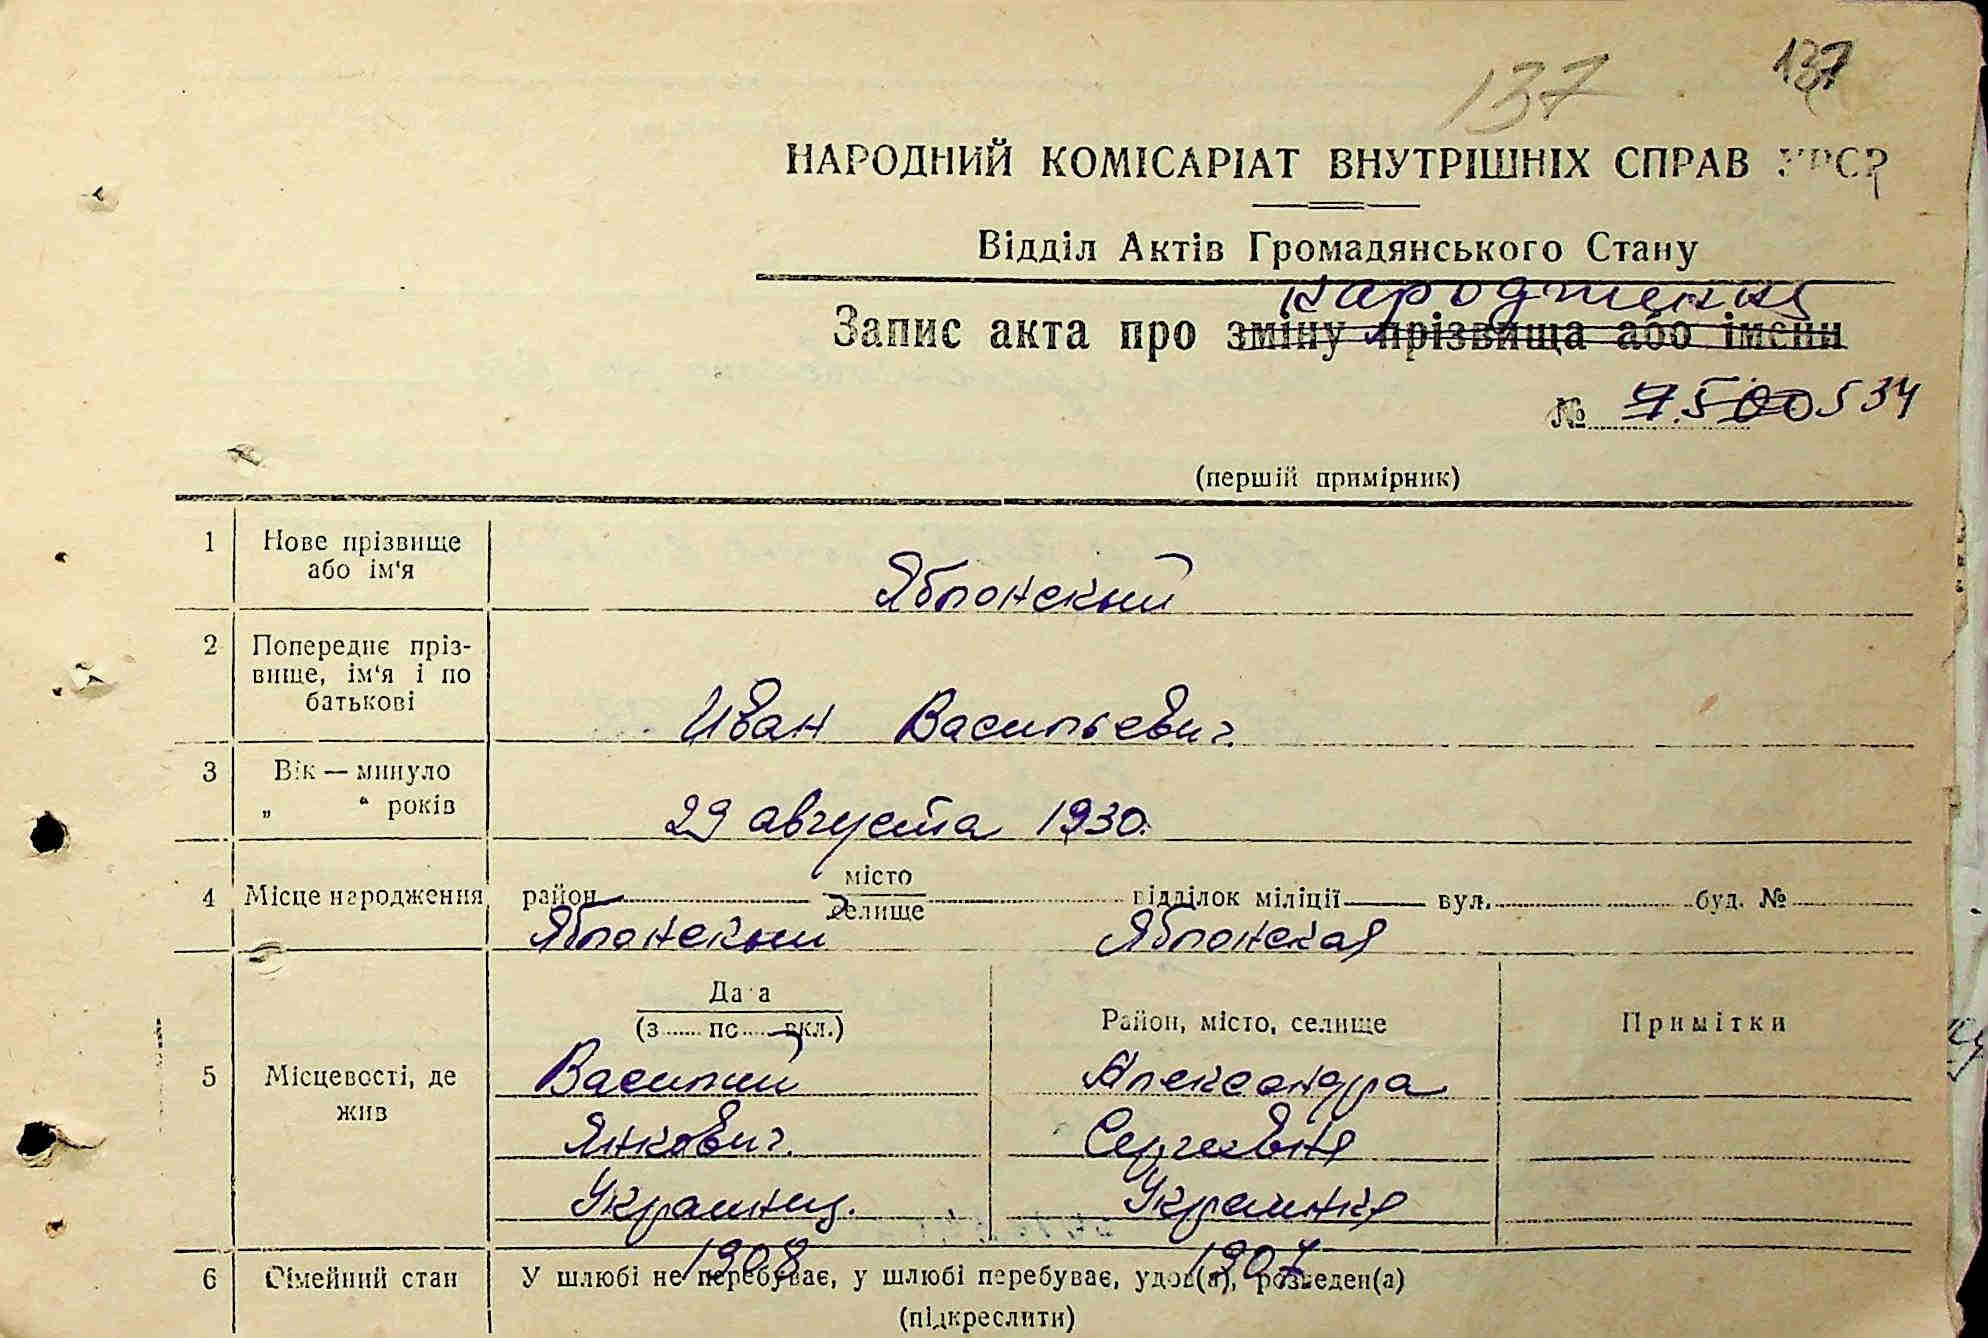 137 137
НАРОДНИЙ КОМІСАРІАТ ВНУТРІШНІХ СПРАВ УРСР
Відділ Актів Громадянського Стану
народження
Запис акта про зміну прізвища або імени
№ 7.500 534
(першій примірник)
1 Нове прізвище або ім'я
Яблонский
2 Попереднє пріз-
вище, ім'я і по
батькові
Иван Васильевич.
3 Вік — минуло
„ “ років
29 августа 1930.
4 Місце народження район місто селище відділок міліції вул. буд. №
Яблонский Яблонская
Дата
(з ...... по ...... вкл.) Район, місто, селище Примітки
5 Місцевості, де
жив
Василий Александра
Янкович. Сергеевна
Украинец. Украинка
1908 1907
6 Сімейний стан У шлюбі не перебуває, у шлюбі перебуває, удов(а), розведен(а)
(підкреслити)